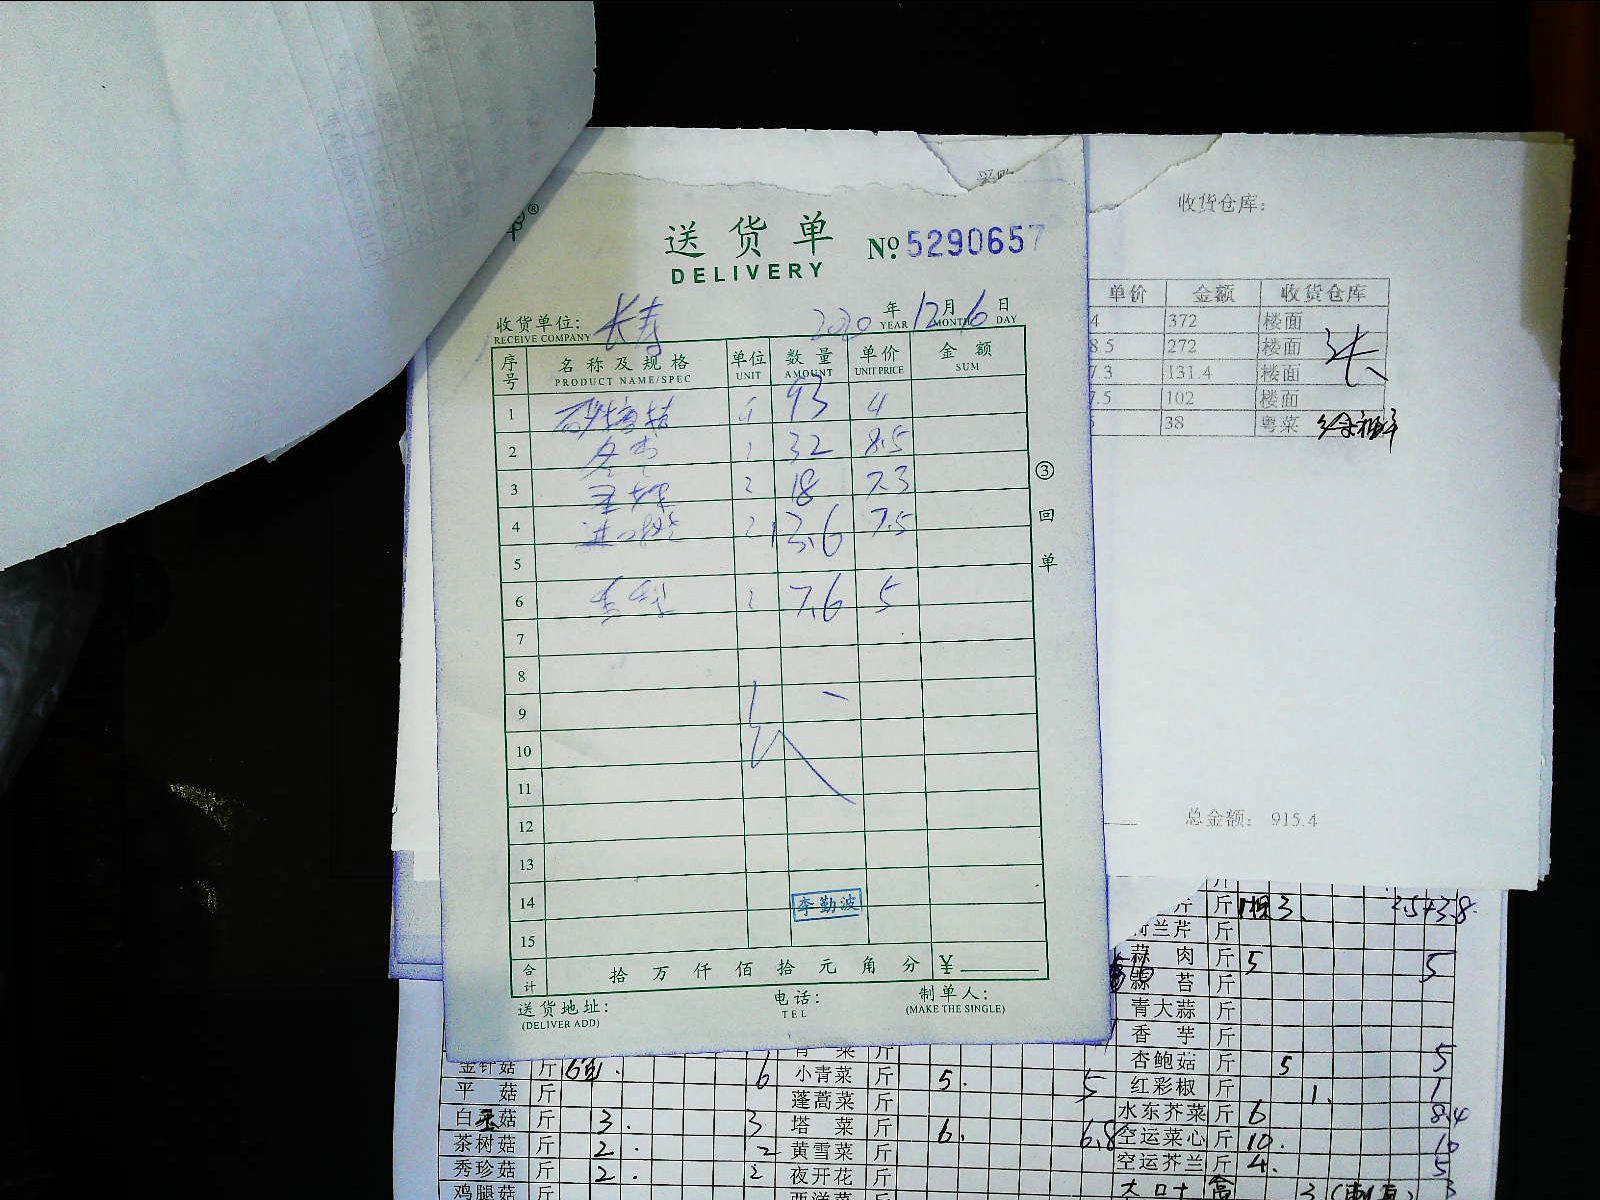 送货单
DELIVERY
No 5290657
收货单位: 长寿
RECEIVE COMPANY
2020 年 12 月 6 日
YEAR MONTH DAY
序号 名称及规格 单位 数量 单价 金额
PRODUCT NAME/SPEC UNIT AMOUNT UNIT PRICE SUM
1 93 4
2 32 8.5
3 18 7.3
4 13.6 7.5
5
6 7.6 5
7
8
9
10
11
12
13
14 李勤波
15
合计 拾 万 仟 佰 拾 元 角 分 ¥
送货地址:
(DELIVER ADD)
电话:
TEL
制单人:
(MAKE THE SINGLE)
③ 回 单
收货仓库:
单价 金额 收货仓库
4 372 楼面
8.5 272 楼面
7.3 131.4 楼面
7.5 102 楼面
38 粤菜
总金额: 915.4
斤 3. 3.8
荷兰芹 斤
蒜肉 斤 5 5
蒜苔 斤
青大蒜 斤
香芋 斤
杏鲍菇 斤 5 5
红彩椒 斤 1. 1
水东芥菜 斤 6 8.4
空运菜心 斤 10. 10
空运芥兰 斤 4. 5
金针菇 斤 6包. 6 小青菜 斤 5. 5
平菇 斤 蓬蒿菜 斤
白玉菇 斤 3. 3 塔菜 斤 6. 6.8
茶树菇 斤 2. 2 黄雪菜 斤
秀珍菇 斤 2. 2 夜开花 斤
鸡腿菇 斤 西洋菜 斤